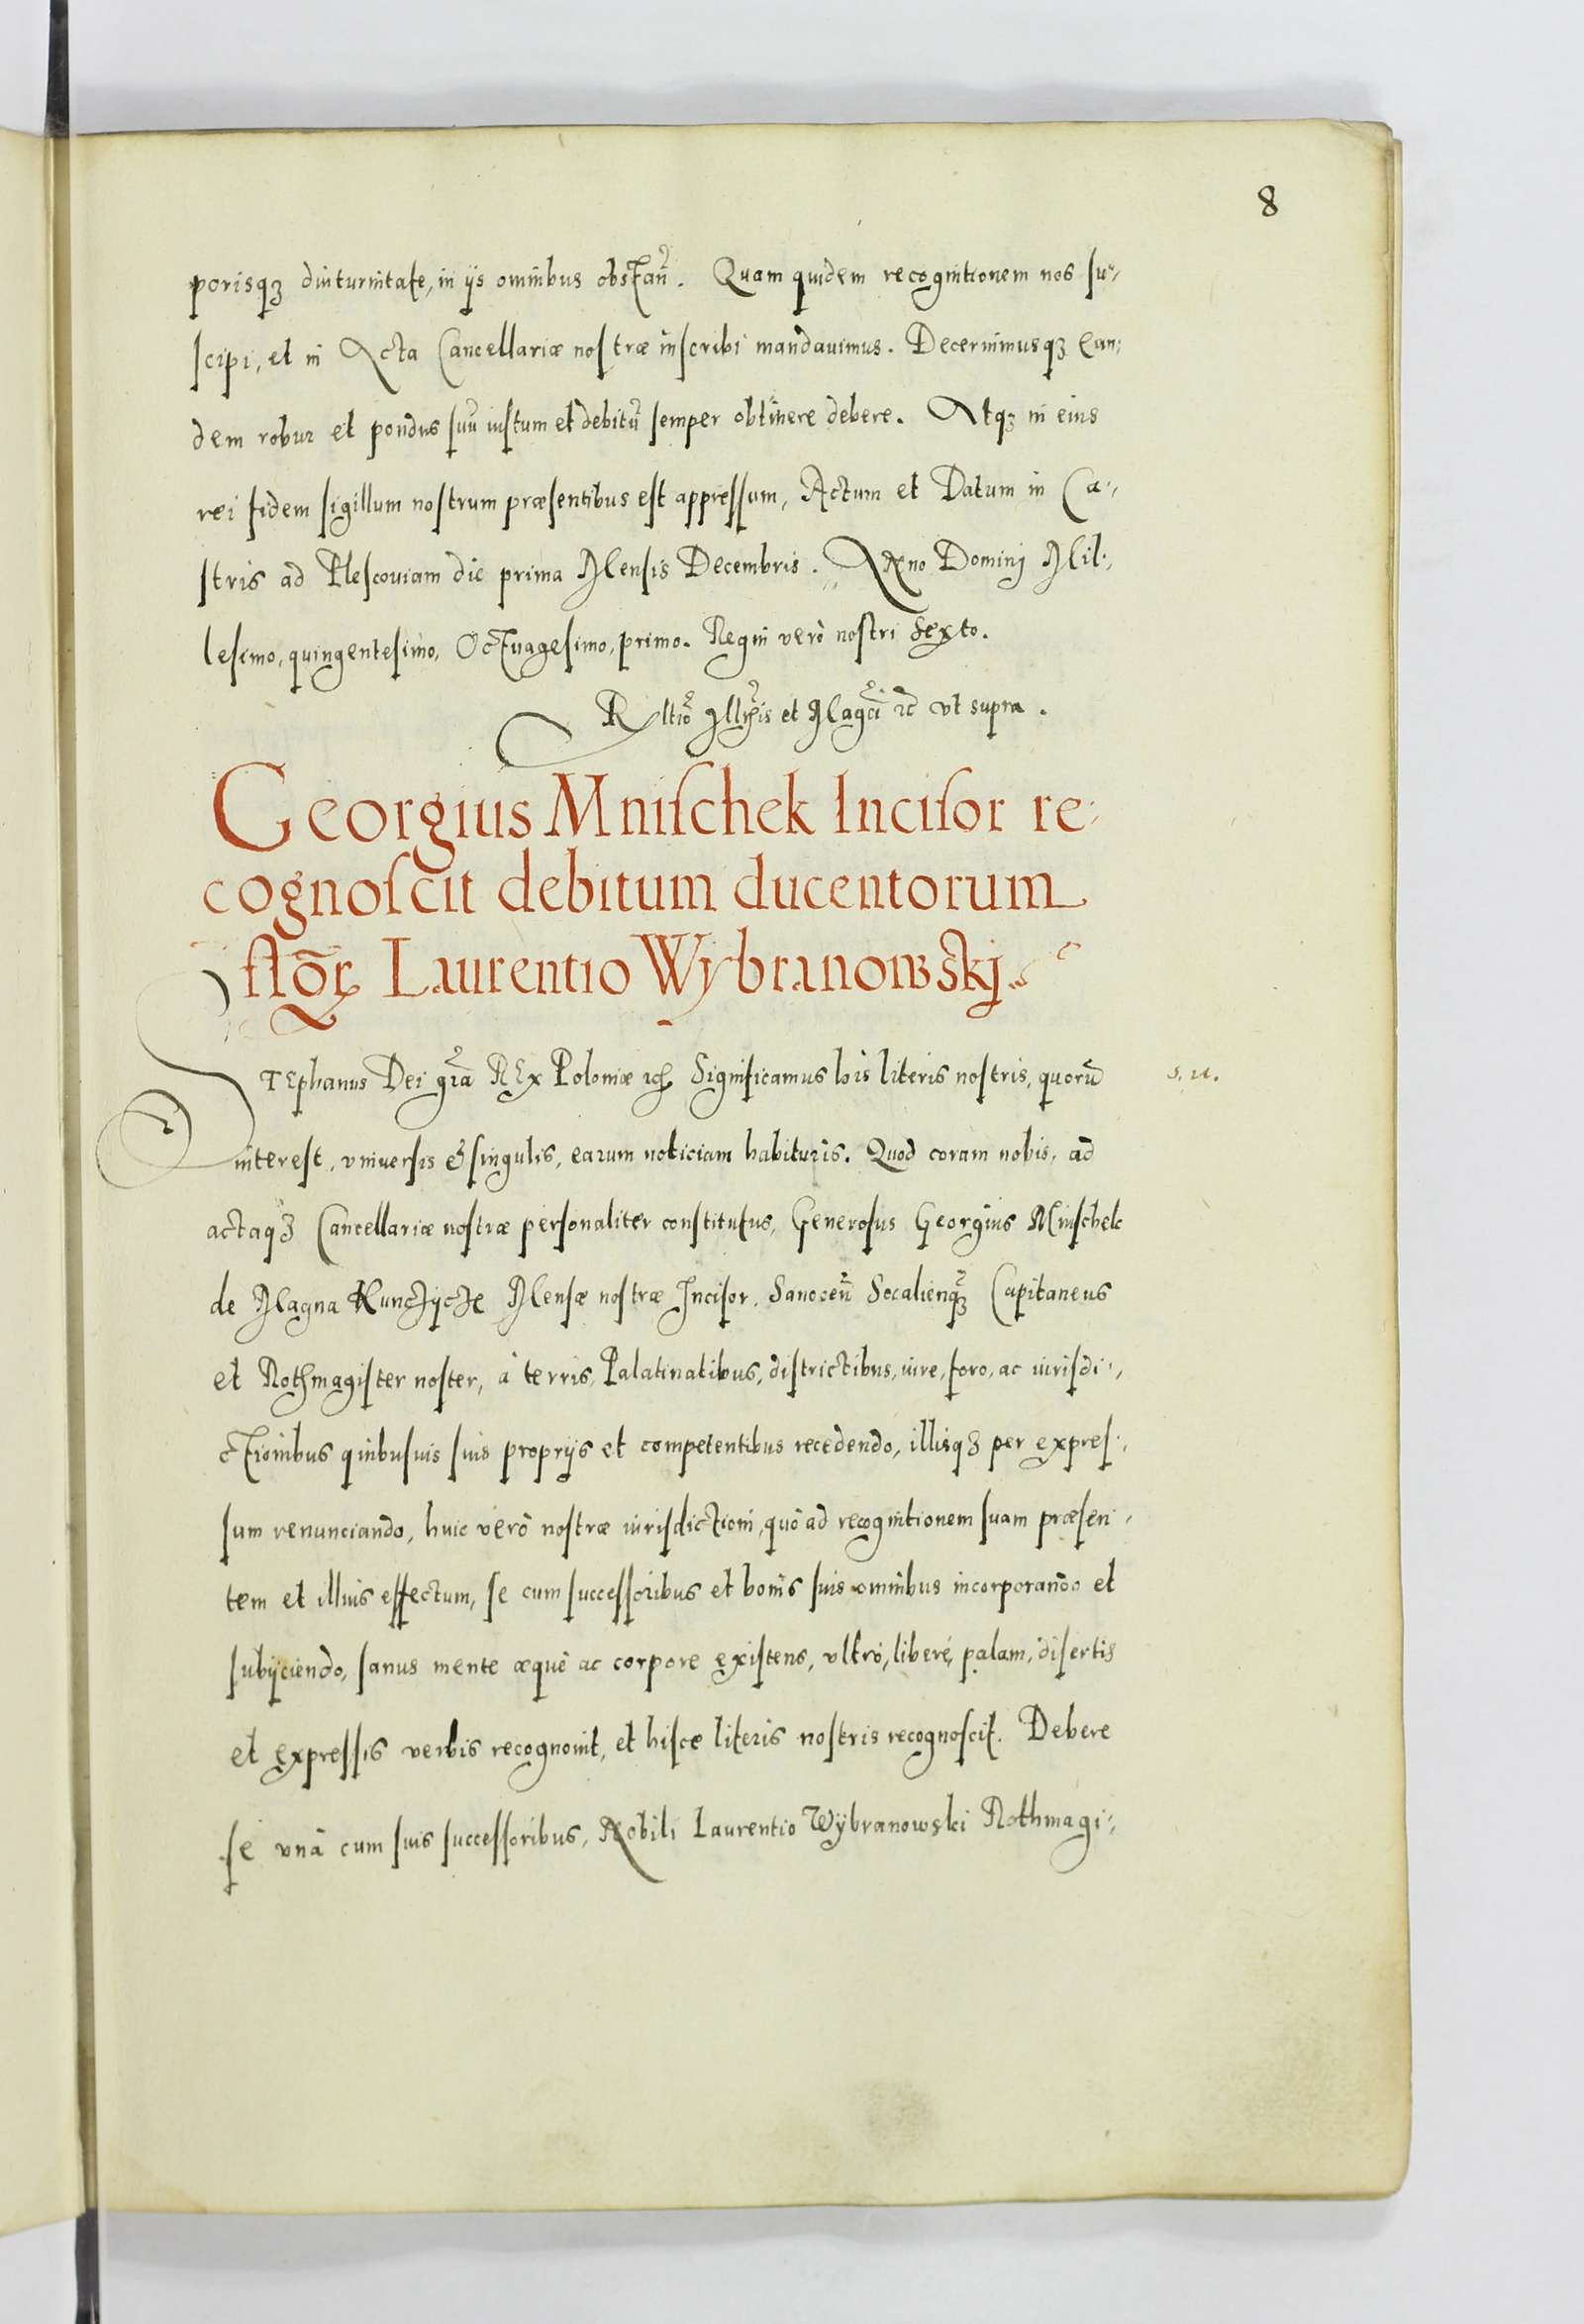 8
porisqȝ diuturnitate, in ijs omnibus obstañ. Quam quidem recognitionem nos su-
scipi, et in Acta Cancellariæ nostræ inscribi mandauimus. Decernimusqȝ ean-
dem robur et pondus suũ iustum et debitũ semper obtinere debere. Atqȝ in eius
rei fidem sigillum nostrum præsentibus est appressum, Actum et Datum in Ca-
stris ad Plescouiam die prima Mensis Decembris. Anno Dominj Mil-
lesimo, quingentesimo, Octuagesimo, primo. Regni verò nostri Sexto.
Rltiõ Illr̃is et Magci ut supra.
Georgius Mnischek Incisor re-
cognoscit debitum ducentorum
flõꝝ Laurentio Wybranowskj.
STephanus Dei gr̃a REx Poloniæ ꝛc̃ Significamus his literis nostris, quorũ
s. u.
interest, vniuersis & singulis, earum noticiam habituris. Quod coram nobis, ad
actaqȝ Cancellariæ nostræ personaliter constitutus, Generosus Georgius Mnischek
de Magna Kunczycze Mensæ nostræ Incisor. Sanoceñ Socalieñqȝ Capitaneus
et Rothmagister noster, à terris, Palatinatibus, districtibus, iure, foro, ac iurisdi-
ctionibus quibusuis suis proprijs et competentibus recedendo, illisqȝ per expres-
sum renunciando, huic verò nostræ iurisdictioni, quò ad recognitionem suam præsen-
tem et illius effectum, se cum successoribus et bonis suis omnibus incorporando et
subijciendo, sanus mente æquè ac corpore existens, vltrò, liberè, palam, disertis
et expressis verbis recognouit, et hisce literis nostris recognoscit. Debere
se vnà cum suis successoribus, Nobili Laurentio Wÿbranowski Rothmagi-